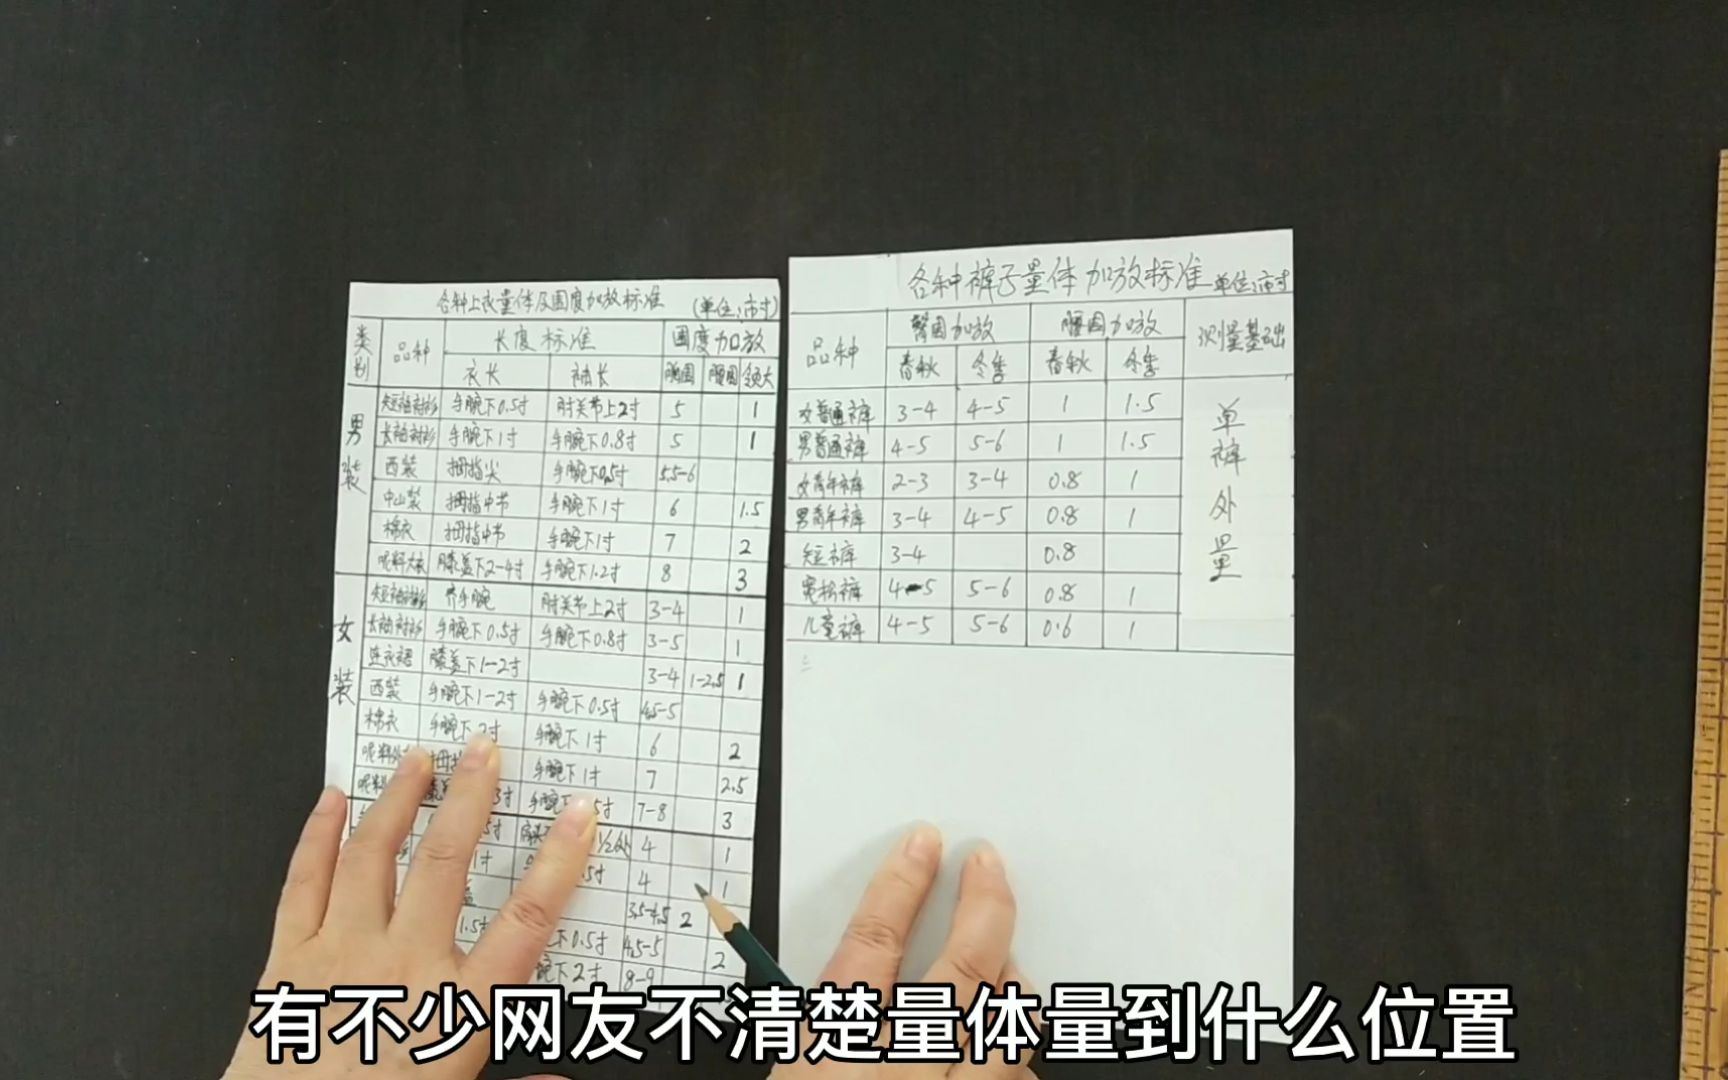 各种上衣量体及围度加放标准 (单位:市寸)
类别 品种 长度标准 围度加放
衣长 袖长 胸围 腰围 领大
男装
短袖衬衫 手腕下0.5寸 肘关节上2寸 5 1
长袖衬衫 手腕下1寸 手腕下0.8寸 5 1
西装 拇指尖 手腕下0.5寸 5.5-6
中山装 拇指中节 手腕下1寸 6 1.5
棉衣 拇指中节 手腕下1寸 7 2
呢料大衣 膝盖下2-4寸 手腕下1.2寸 8 3
女装
短袖衬衫 齐手腕 肘关节上2寸 3-4 1
长袖衬衫 手腕下0.5寸 手腕下0.8寸 3-5 1
连衣裙 膝盖下1-2寸 3-4 1-2.5 1
西装 手腕下1-2寸 手腕下0.5寸 4.5-5
棉衣 手腕下2寸 手腕下1寸 6 2
呢料外 拇 手腕下1寸 7 2.5
呢料 膝 3寸 手腕下 5寸 7-8 3
5寸 1/2处 4 1
1寸 5寸 4 1
3.5-4.5 2
1.5寸 下0.5寸 4.5-5 2
腕下2寸 8-9
各种裤子量体加放标准 单位:市寸
品种 臀围加放 腰围加放 测量基础
春秋 冬季 春秋 冬季
女普通裤 3-4 4-5 1 1.5
男普通裤 4-5 5-6 1 1.5
女青年裤 2-3 3-4 0.8 1
男青年裤 3-4 4-5 0.8 1
短裤 3-4 0.8
宽松裤 4-5 5-6 0.8 1
儿童裤 4-5 5-6 0.6 1
单裤外量
有不少网友不清楚量体量到什么位置